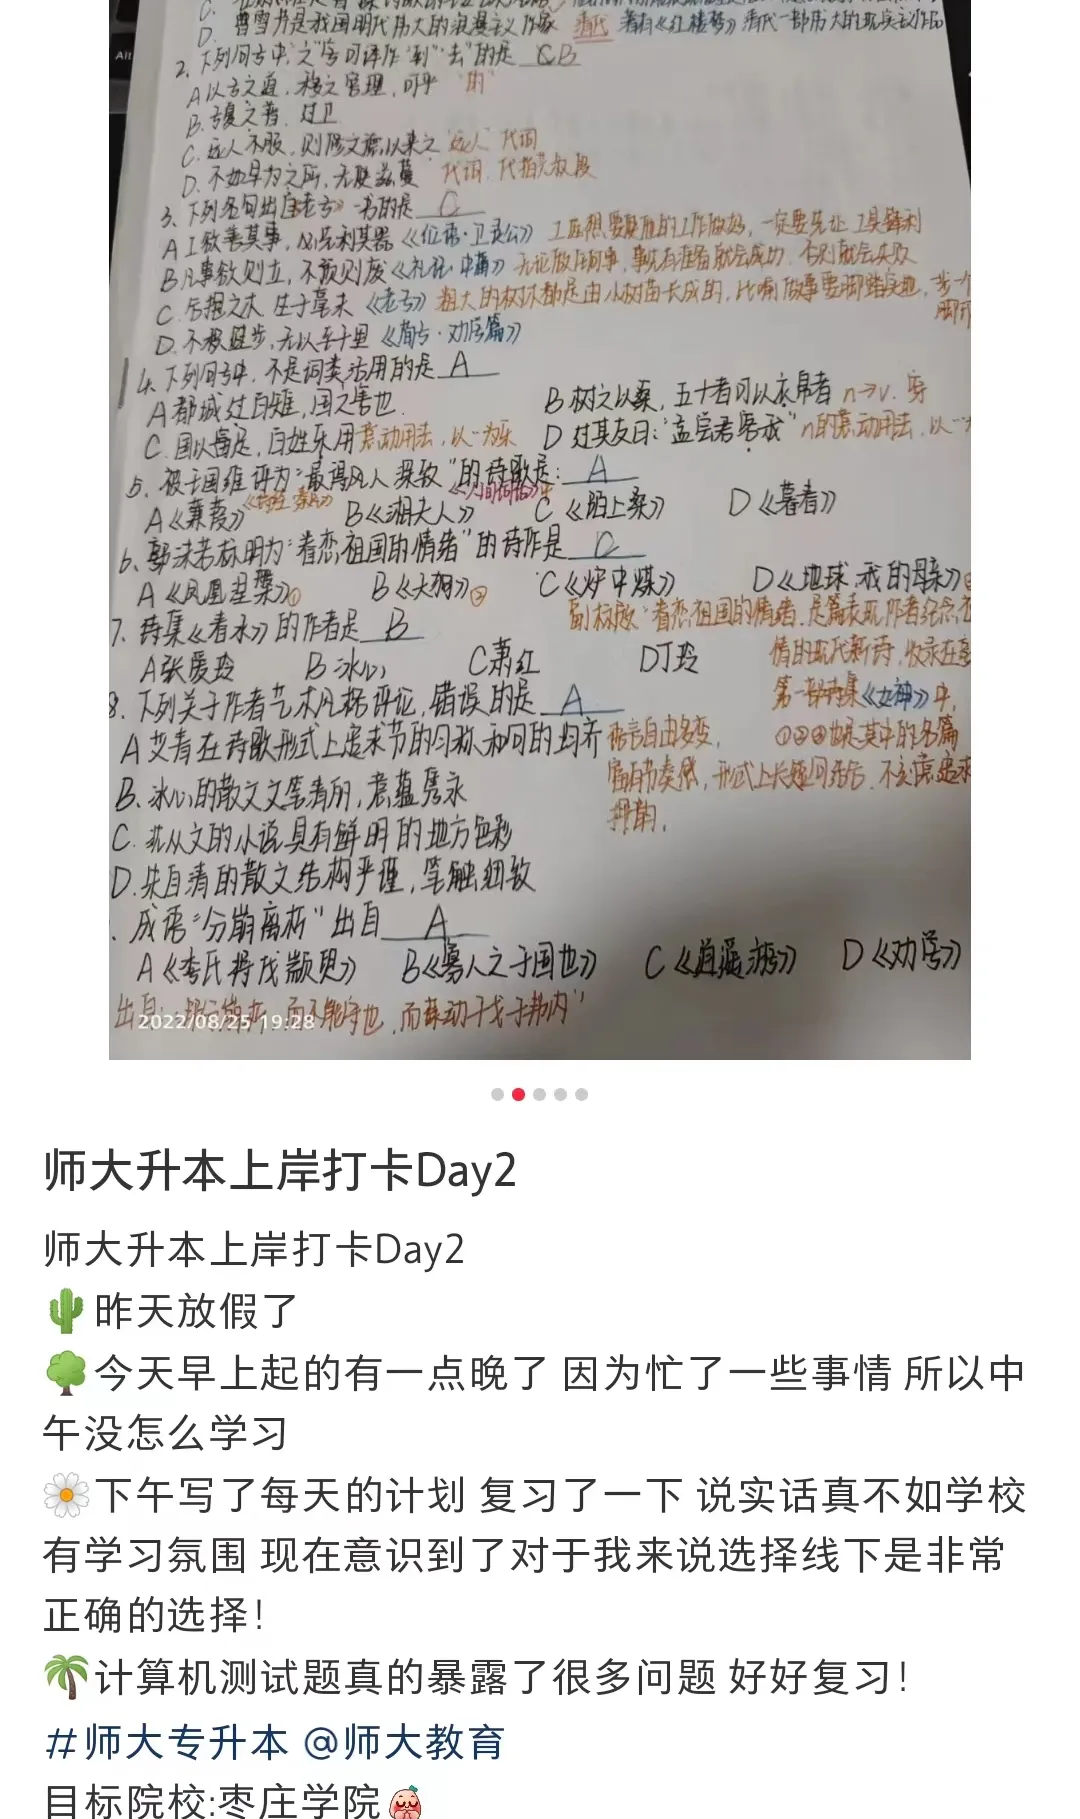 D. 曹雪芹是我国明代伟大的浪漫主义作家 清代 著有《红楼梦》清代一部伟大的现实主义作品
2. 下列句中"之"字可译作"到""去"的是 CB
A 以古之道,移之官理,可乎 "的"
B. 之,过卫
C. 远人不服,则修文德以来之 "远人" 代词
D. 不如早为之所,无使滋蔓 代词,代指共叔段
3. 下列各句出自《老子》一书的是 C
A 工欲善其事,必先利其器《论语·卫灵公》 工匠想要使他的工作做好,一定要先让工具锋利
B 凡事欲则立,不预则废《礼记·中庸》 无论做任何事,事先有准备就会成功,否则就会失败
C. 合抱之木 生于毫末《老子》 粗大的树木都是由小树苗长成的,比喻做事要脚踏实地,步一个
D. 不积跬步,无以至千里《荀子·劝学篇》
4. 下列句中,不是词类活用的是 A
A 都城过百雉,国之害也. B 树之以桑,五十者可以衣帛者 n→v. 穿
C. 国以富足,百姓乐用 意动用法,以…为乐 D 过其友曰:"孟尝君客我" n的意动用法,以…
5. 被王国维评为"最得风人深致"的诗歌是: A
《诗经·秦风》 《人间词话》
A《蒹葭》 B《湘夫人》 C《陌上桑》 D《暮春》
6. 郭沫若标明为"眷恋祖国的情绪"的诗作是 C
A《凤凰涅槃》① B《天狗》② C《炉中煤》 D《地球,我的母亲》
副标题"眷恋祖国的情绪,是篇表现作者
7. 诗集《春水》的作者是 B
情的现代新诗,收录在
A 张爱玲 B 冰心 C 萧红 D 丁玲
第一部诗集《女神》中,
8. 下列关于作者艺术风格评论,错误的是 A
①②③也是其中的名篇
A 艾青在诗歌形式上追求节的匀称和句的均齐 语言自由多变,
富有节奏感,形式上长短句结合,不刻意追求
押韵.
B. 冰心的散文文笔清丽,意蕴隽永
C. 沈从文的小说具有鲜明的地方色彩
D. 朱自清的散文结构严谨,笔触细致
. 成语"分崩离析"出自 A
A《季氏将伐颛臾》 B《寡人之于国也》 C《逍遥游》 D《劝学》
出自:邦分崩离析,而不能守也,而谋动干戈于邦内"
2022/08/25 19:28
师大升本上岸打卡Day2
师大升本上岸打卡Day2
🌵昨天放假了
🌳今天早上起的有一点晚了 因为忙了一些事情 所以中
午没怎么学习
🌼下午写了每天的计划 复习了一下 说实话真不如学校
有学习氛围 现在意识到了对于我来说选择线下是非常
正确的选择!
🌴计算机测试题真的暴露了很多问题 好好复习!
#师大专升本 @师大教育
目标院校:枣庄学院